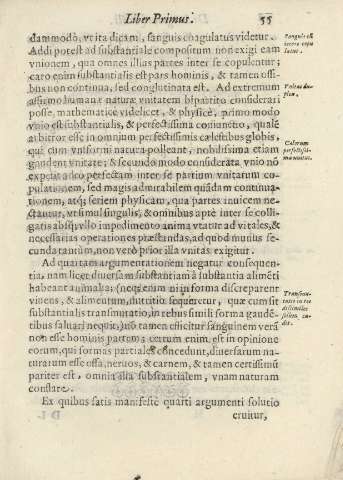 Liber Primus. 55
dammodò, vt ita dicam, sanguis coagulatus videtur.
Addi potest ad substantiale compositum non exigi eam
vnionem, qua omnes illius partes inter se copulentur;
caro enim substantialis est pars hominis, & tamen ossi-
bus non continua, sed conglutinata est. Ad extremum
assirmo humanæ naturæ vnitatem bipartito considerari
posse, mathematicè videlicet, & physicè, primo modo
vnio est substantialis, & perfectissima coniunctio, qualē
arbitror esse in omnium perfectissimis cælestibus globis,
qui cùm vniformi natura polleant, nobilissima etiam
gaudent vnitate; & secundo modo considerata vnio nō
expetit adeo perfectam inter se partium vnitarum co-
pulationem, sed magis admirabilem quādam continua-
tionem, atq; seriem physicam, qua partes inuicem ne-
ctantur, vt simul singulis, & omnibus aptè inter se colli-
gatis absq; vllo impedimento anima vtatur ad vitales, &
necessarias operationes præstandas, ad quod munus se-
cunda tantùm, non verò prior illa vnitas exigitur.
Ad quartam argumentationem negatur consequen-
tia, nam licet diuersam substantiam à substantia alimēti
habeant animalia; (neq; enim ni in forma discreparent
viuens, & alimentum, nutritio sequeretur, quæ cùm sit
substantialis transmutatio, in rebus simili forma gaudē-
tibus saluari nequit;) nō tamen efficitur sanguinem verā
non esse hominis partem; certum enim est in opinione
eorum, qui formas partiales concedunt, diuersarum na-
turarum esse ossa, neruos, & carnem, & tamen certissimū
pariter est, omnia illa substantialem, vnam naturam
constare.
Ex quibus satis manifestè quarti argumenti solutio
eruitur,
Sanguis est
Vnitas du-
plex.
Cælorum
perfectissi-
ma vnitas.
Transmu-
tatio in re
dissimiles
solum ca-
dit.